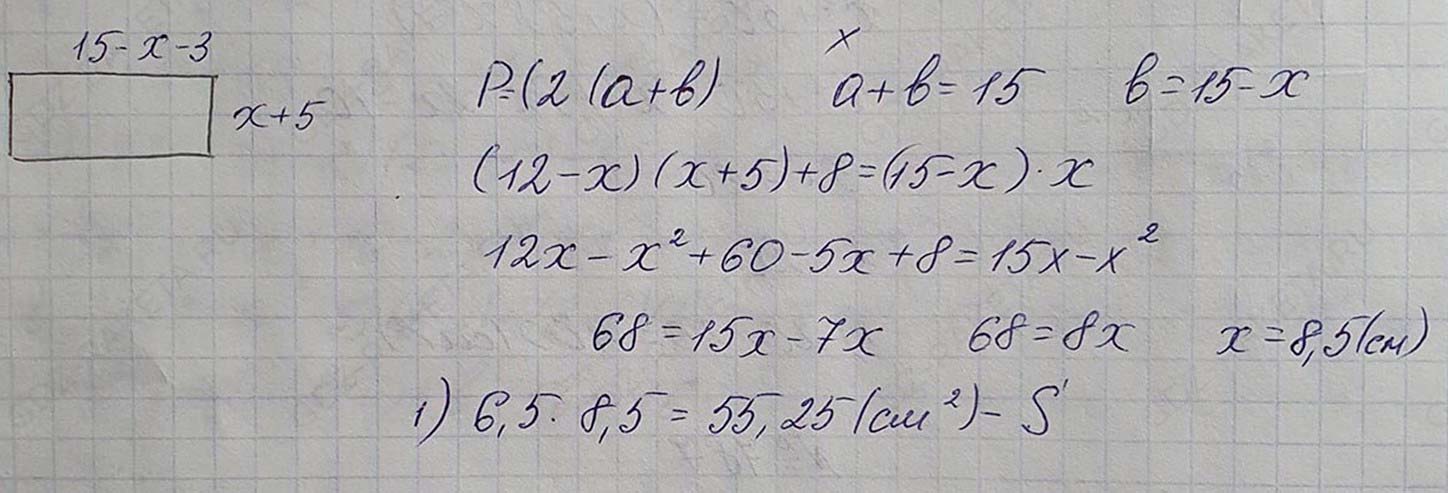 15-x-3
x+5
x
P=(2(a+b) a+b=15 b=15-x
(12-x)(x+5)+8=(15-x)·x
12x-x²+60-5x+8=15x-x²
68=15x-7x 68=8x x=8,5(см)
1) 6,5·8,5=55,25(см²)-S